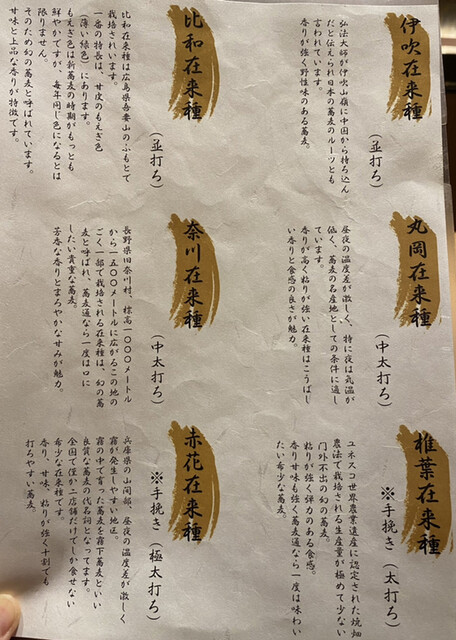 伊吹在来種
(並打ち)
弘法大師が伊吹山嶺に中国から持ち込ん
だと伝えられ日本の蕎麦のルーツとも
言われています。
香りが強く野性味のある蕎麦。
比和在来種
(並打ち)
比和在来種は広島県吾妻山のふもとで
栽培されています。
一番の特長は、甘皮のもえぎ色
(薄い緑色)にあります。
もえぎ色は新蕎麦の時期がもっとも
鮮やかですが、毎年同じ色になるとは
限りません
そのため幻の蕎麦と呼ばれています。
甘味と上品な香りが特徴です。
丸岡在来種
(中太打ち)
昼夜の温度差が激しく、特に夜は気温が
低く、蕎麦の名産地としての条件に適し
ています。
香りが高く粘りが強い在来種はこうばし
い香りと食感の良さが魅力。
奈川在来種
(中太打ち)
長野県旧奈川村、標高一〇〇〇メートル
から一五〇〇メートルに広がるこの地の
ごく一部で栽培される在来種は、幻の蕎
麦と呼ばれ、蕎麦通なら一度は口に
したい貴重な蕎麦。
芳香な香りとまろやかな甘みが魅力。
椎葉在来種
※手挽き(太打ち)
ユネスコ世界農業遺産に認定された焼畑
農法で栽培される生産量が極めて少ない
門外不出の幻の蕎麦。
粘りが強く弾力のある食感。
香り甘味も強く蕎麦通なら一度は味わい
たい希少な蕎麦。
赤花在来種
※手挽き(極太打ち)
兵庫県の山間部、昼夜の温度差が激しく
霧が発生しやすい地区。
霧の中で育った蕎麦を霧下蕎麦といい
良質な蕎麦の代名詞となってます。
全国で僅か二店舗だけでしか食せない
希少な在来種です。
香り、甘味、粘りが強く十割でも
打ちやすい蕎麦。